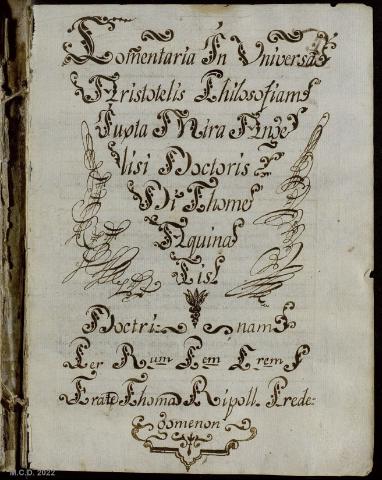 Comentaria In Universam
Aristotelis Philosofiam
Iuxta Mira Ange
lisi Doctoris
Di Thome
Aquina
tis
Doctri: nam
Per Rum Pem Prem F
Frate Thoma Ripoll. Prede:
gomenon
M.C.D. 2022